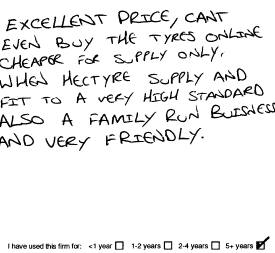 EXCELLENT PRICE, CANT
EVEN BUY THE TYRES ONLINE
CHEAPER FOR SUPPLY ONLY,
WHEN HECTYRE SUPPLY AND
FIT TO A VERY HIGH STANDARD
ALSO A FAMILY RUN BUISNESS
AND VERY FRIENDLY.
I have used this firm for: <1 year 1-2 years 2-4 years 5+ years